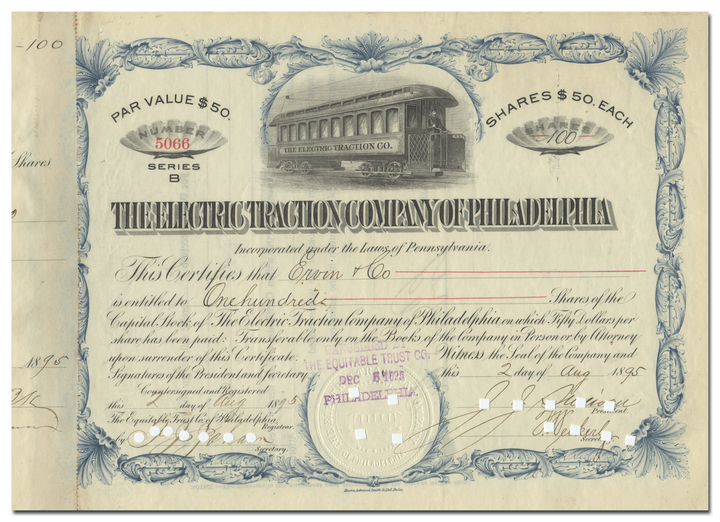 -100
Shares
1895
PAR VALUE $50.
NUMBER
5066
SERIES
B
SHARES $50. EACH
SHARES
100
THE ELECTRIC TRACTION CO.
THE ELECTRIC TRACTION COMPANY OF PHILADELPHIA
Incorporated under the Laws of Pennsylvania.
This Certifies that Ervin & Co
is entitled to One hundred Shares of the
Capital Stock of The Electric Traction Company of Philadelphia on which Fifty Dollars per
share has been paid: Transferable only on the Books of the Company in Person or by Attorney
upon surrender of this Certificate. Witness the Seal of the Company and
Signatures of the President and Secretary this 2 day of Aug 1895
THE EQUITABLE TRUST CO.
DEC
PHILADELPHIA.
Countersigned and Registered
this 2 day of Aug 1895
The Equitable Trust Co. of Philadelphia,
Registrar.
by
Secretary.
President.
Secretary